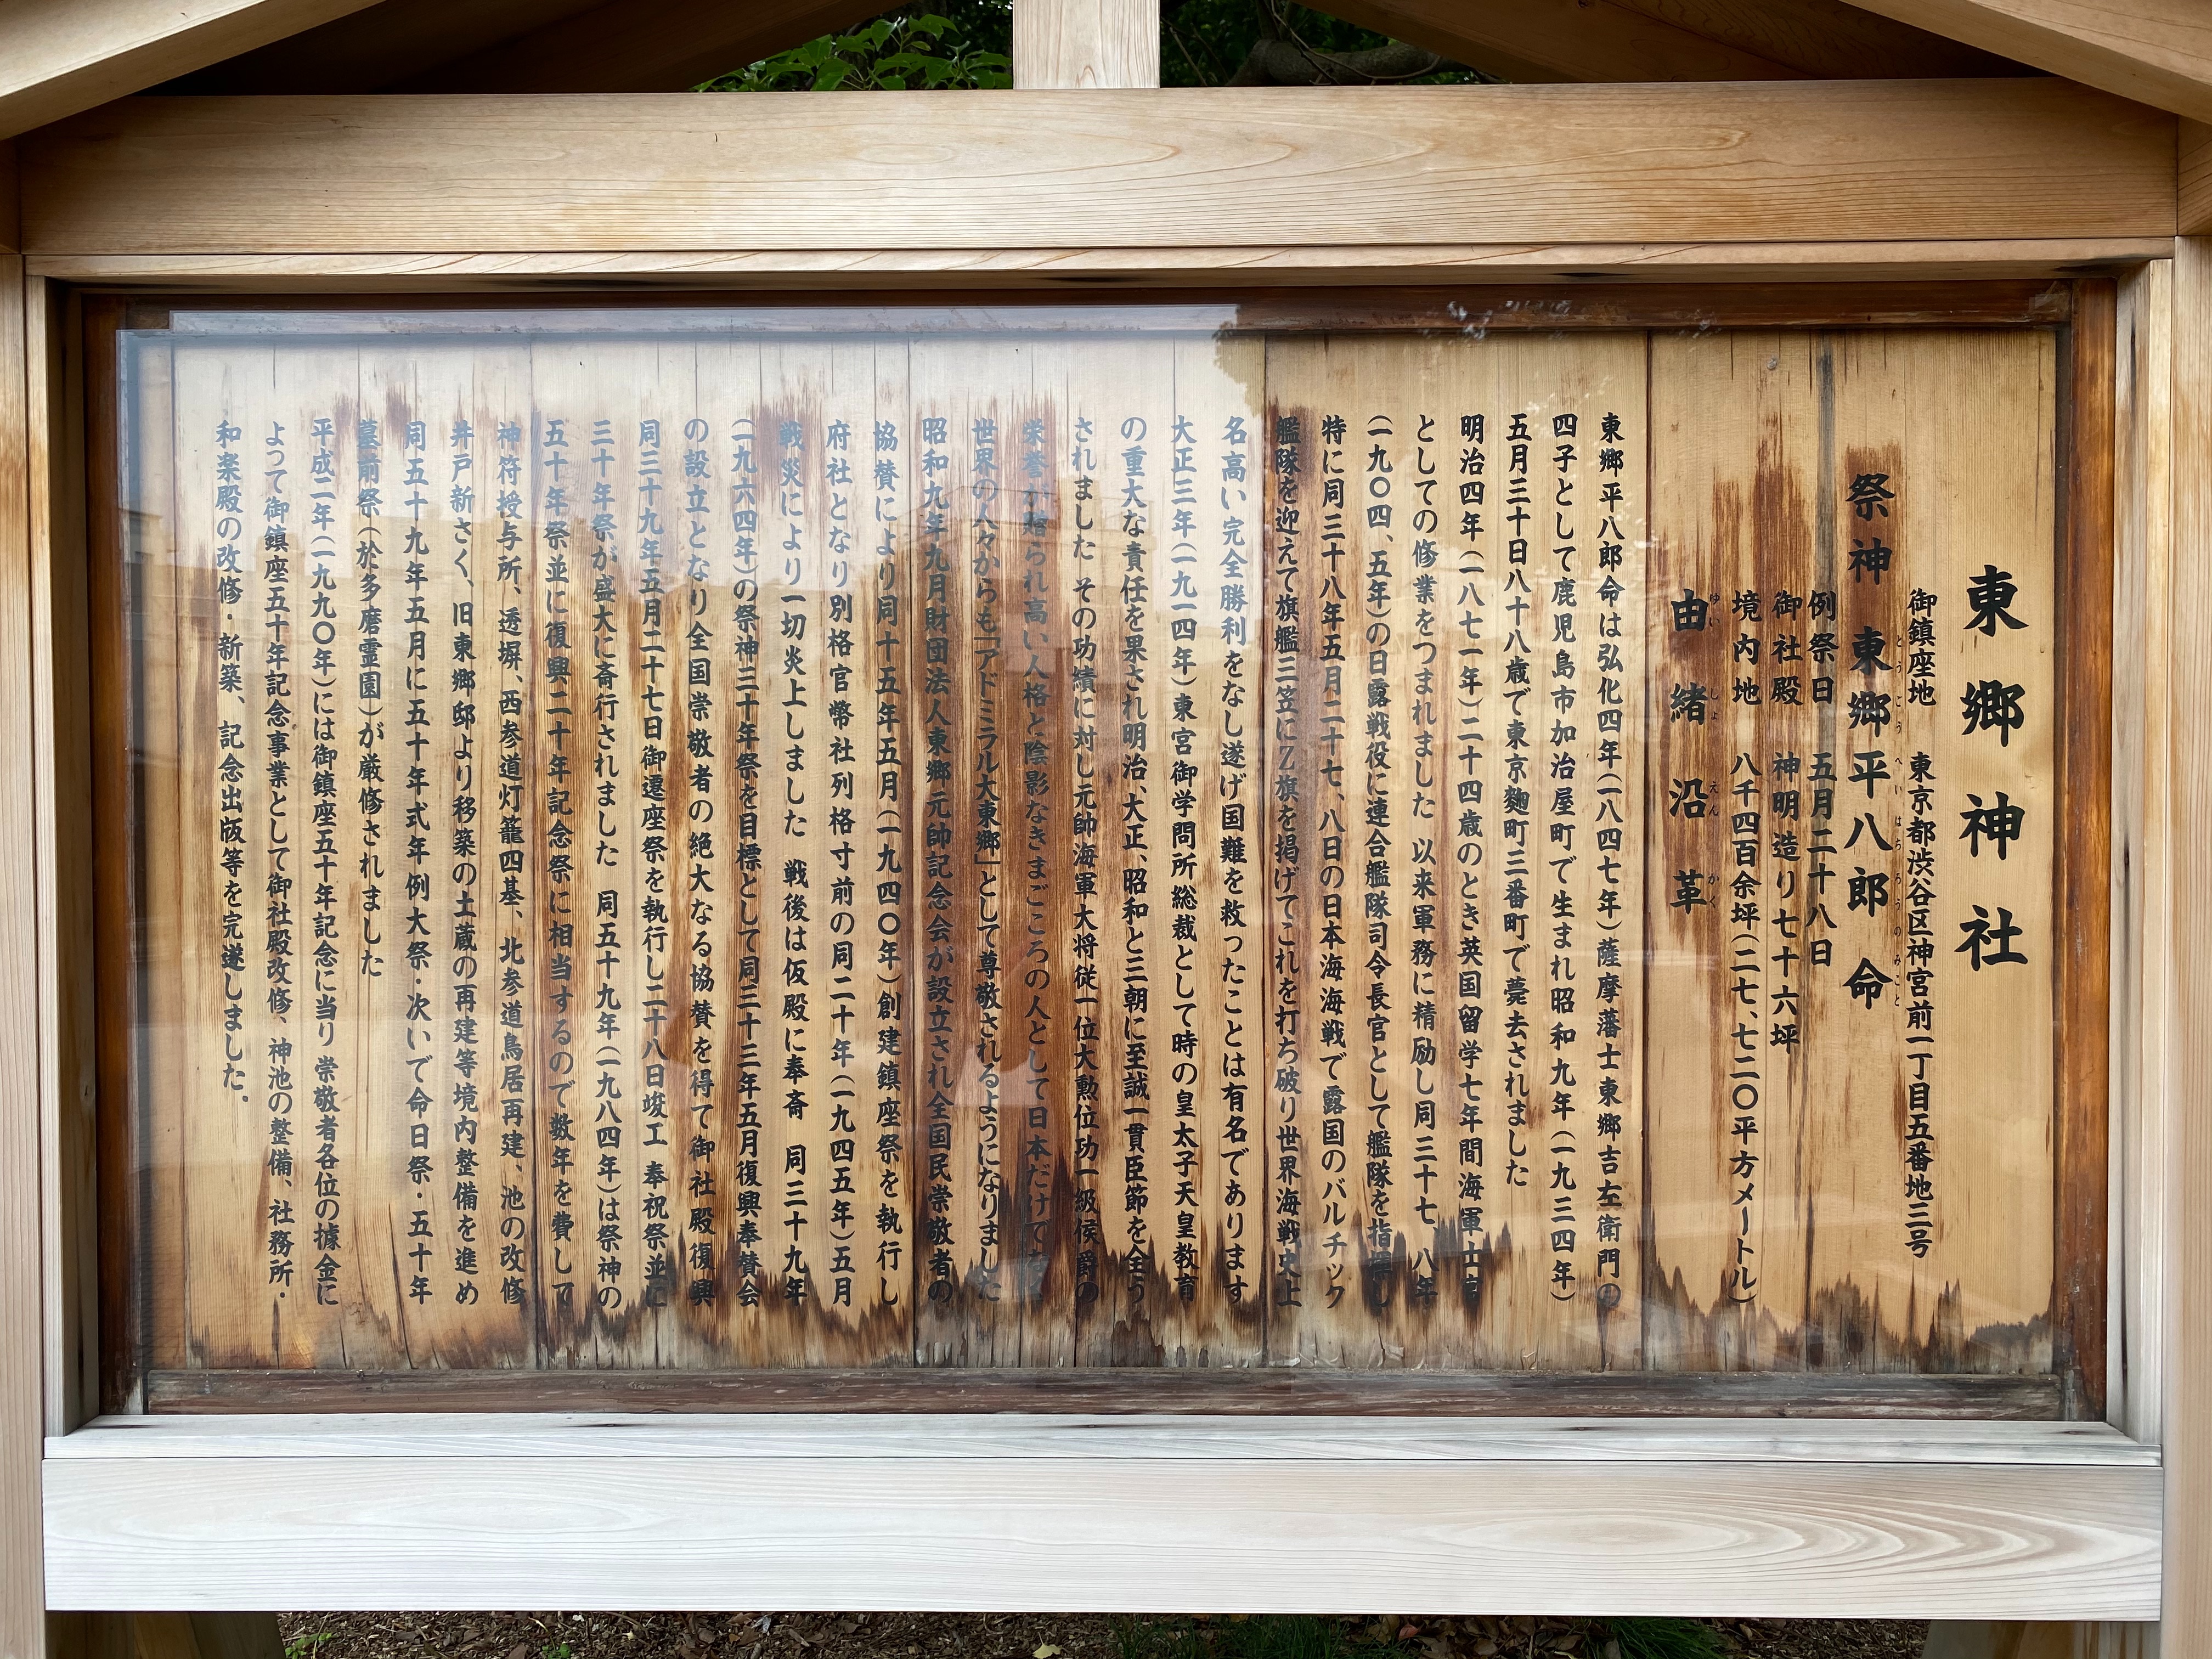 東郷神社
御鎮座地　東京都渋谷区神宮前一丁目五番地三号
祭神　東郷平八郎命
とうごうへいはちろうのみこと
例祭日　五月二十八日
御社殿　神明造り七十六坪
境内地　八千四百余坪(二七、七二〇平方メートル)
由緒沿革
ゆいしょえんかく
東郷平八郎命は弘化四年(一八四七年)薩摩藩士東郷吉左衛門の
四子として鹿児島市加治屋町で生まれ昭和九年(一九三四年)
五月三十日八十八歳で東京麹町三番町で薨去されました
明治四年(一八七一年)二十四歳のとき英国留学七年間海軍士官
としての修業をつまれました 以来軍務に精励し同三十七、八年
(一九〇四、五年)の日露戦役に連合艦隊司令長官として艦隊を指揮し
特に同三十八年五月二十七、八日の日本海海戦で露国のバルチック
艦隊を迎えて旗艦三笠にZ旗を掲げてこれを打ち破り世界海戦史上
名高い完全勝利をなし遂げ国難を救ったことは有名であります
大正三年(一九一四年)東宮御学問所総裁として時の皇太子天皇教育
の重大な責任を果され明治、大正、昭和と三朝に至誠一貫臣節を全う
されました その功績に対し元帥海軍大将従一位大勲位功一級侯爵の
栄誉が贈られ高い人格と陰影なきまごころの人として日本だけでなく
世界の人々からも「アドミラル大東郷」として尊敬されるようになりました
昭和九年九月財団法人東郷元帥記念会が設立され全国民崇敬者の
協賛により同十五年五月(一九四〇年)創建鎮座祭を執行し
府社となり別格官幣社列格寸前の同二十年(一九四五年)五月
戦災により一切炎上しました 戦後は仮殿に奉斎 同三十九年
(一九六四年)の祭神三十年祭を目標として同三十三年五月復興奉賛会
の設立となり全国崇敬者の絶大なる協賛を得て御社殿復興
同三十九年五月二十七日御遷座祭を執行し二十八日竣工 奉祝祭並に
三十年祭が盛大に斎行されました 同五十九年(一九八四年)は祭神の
五十年祭並に復興二十年記念祭に相当するので数年を費して
神符授与所、透塀、西参道灯籠四基、北参道鳥居再建、池の改修
井戸新さく、旧東郷邸より移築の土蔵の再建等境内整備を進め
同五十九年五月に五十年式年例大祭・次いで命日祭・五十年
墓前祭(於多磨霊園)が厳修されました
平成二年(一九九〇年)には御鎮座五十年記念に当り 崇敬者各位の據金に
よって御鎮座五十年記念事業として御社殿改修、神池の整備、社務所・
和楽殿の改修・新築、記念出版等を完遂しました。